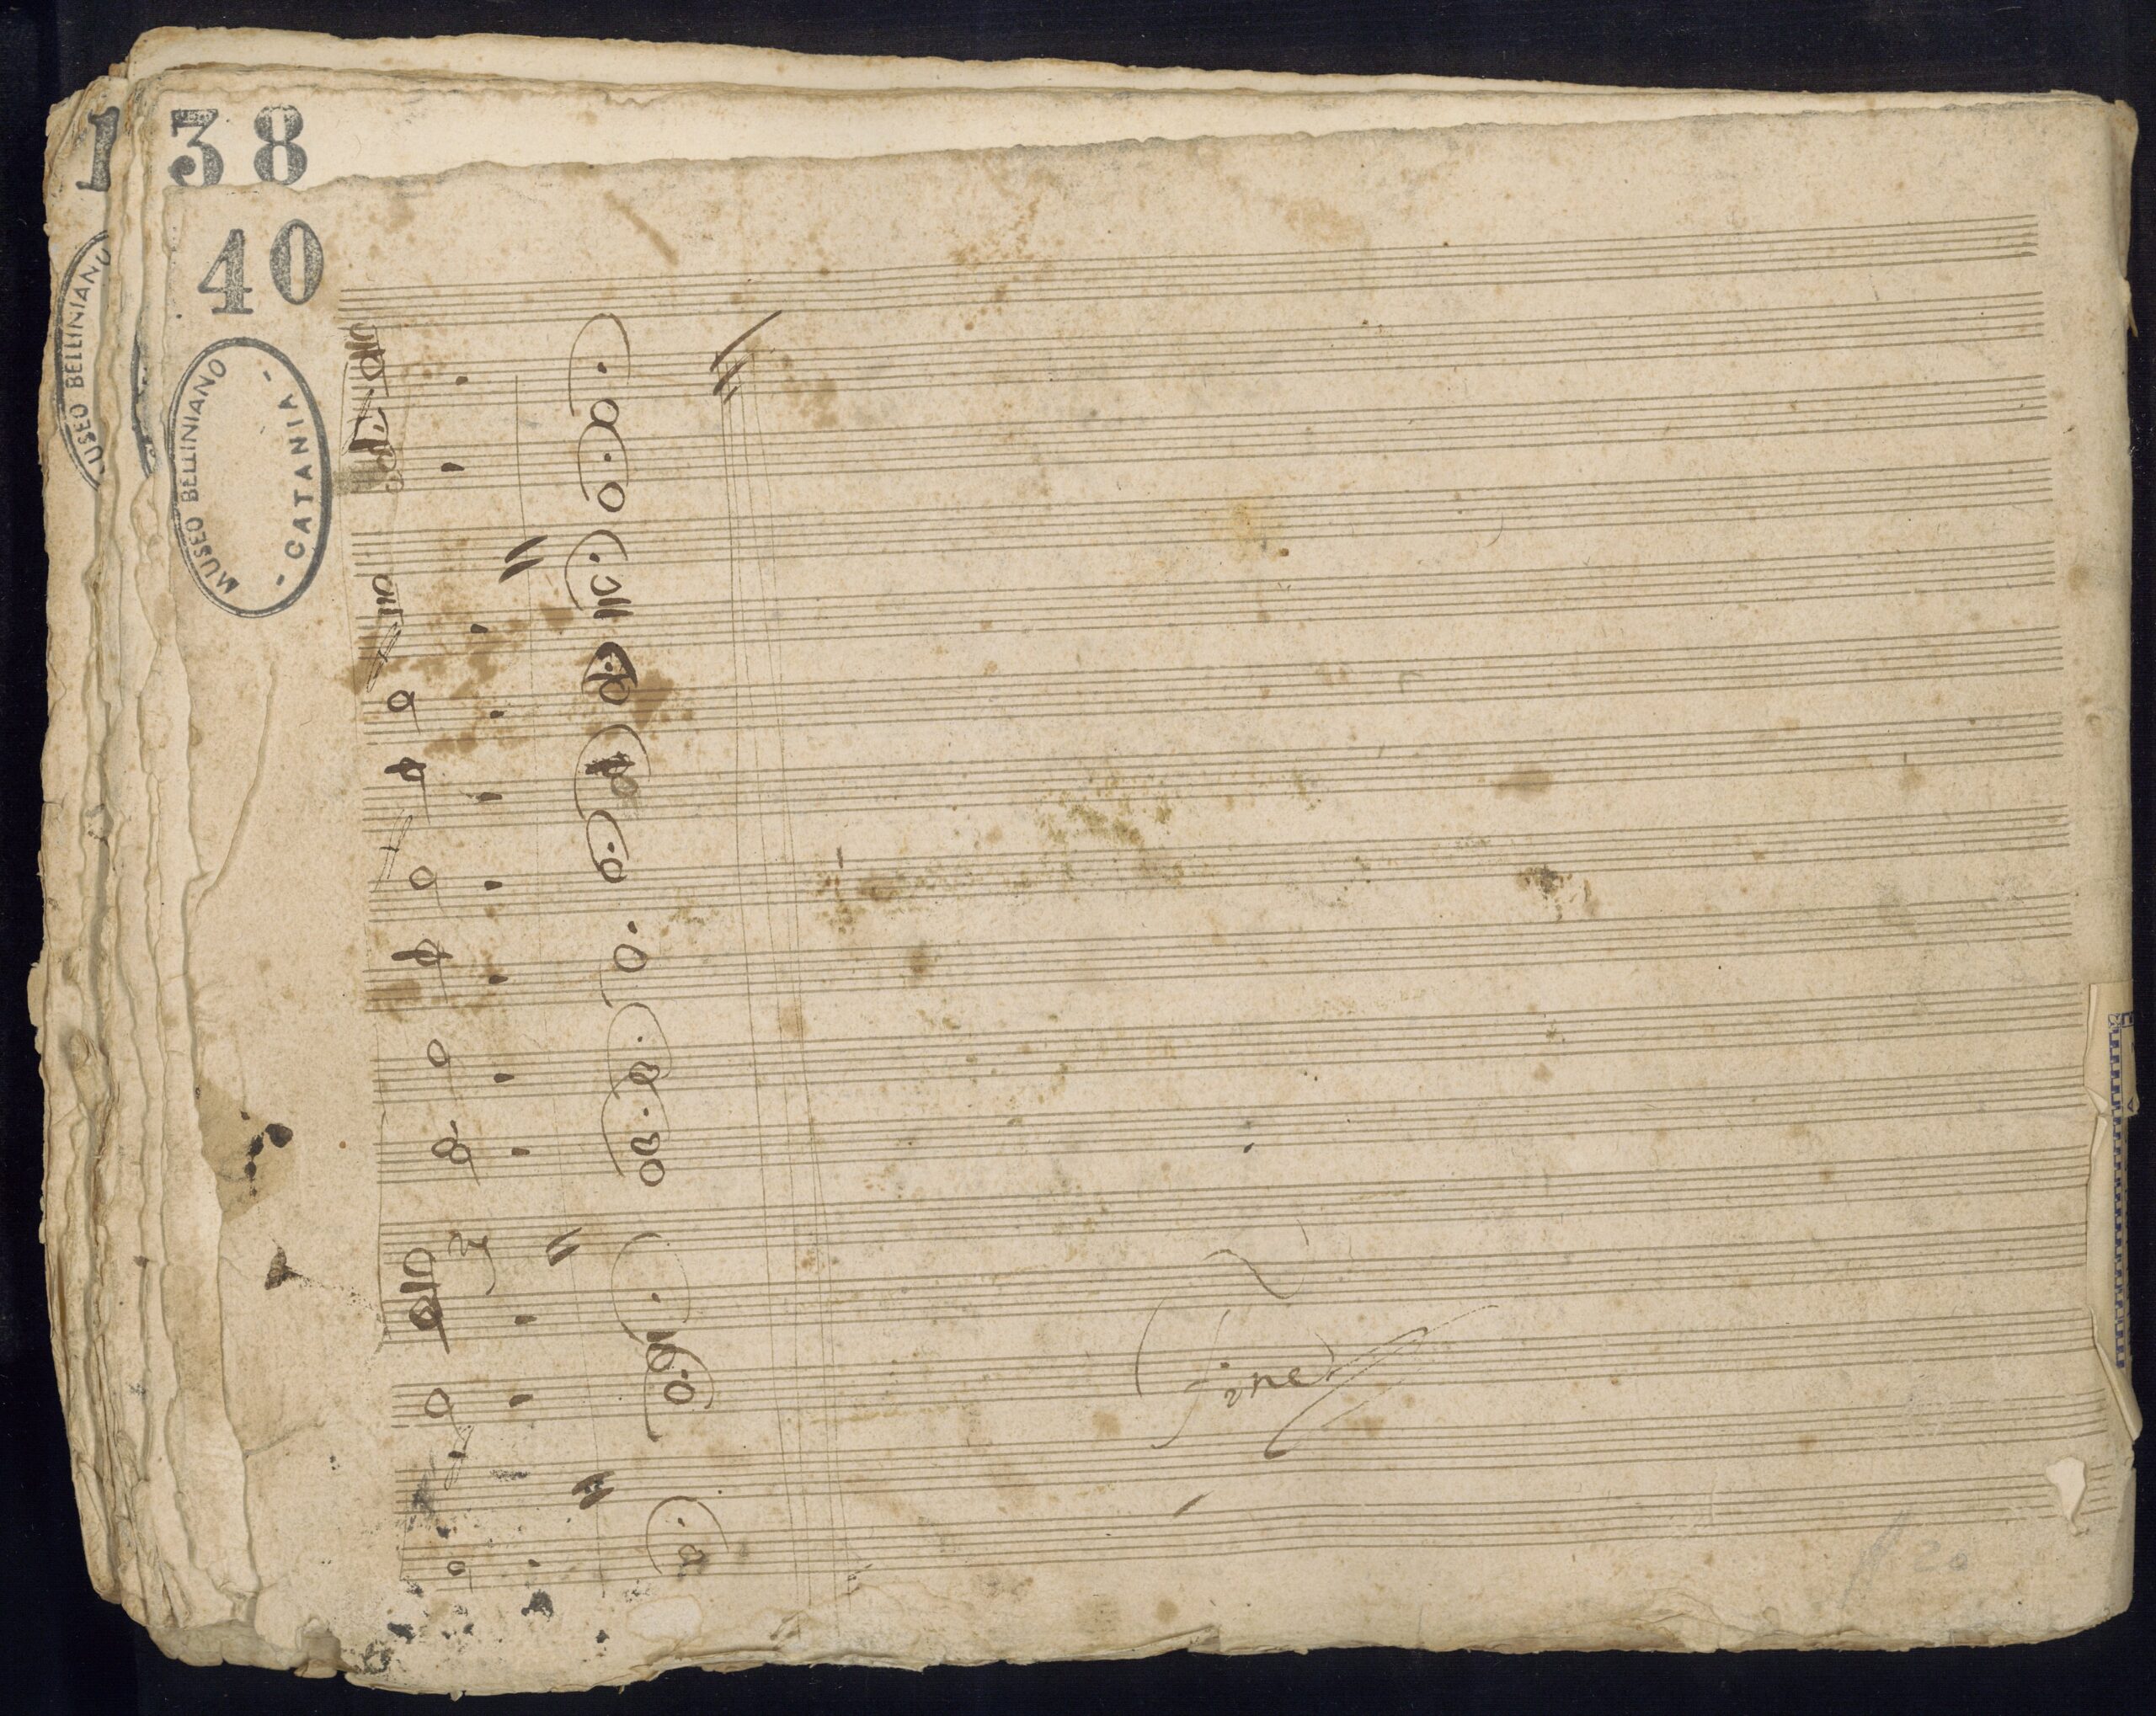 1 38
40
USEO BELLINIANO
MUSEO BELLINIANO
- CATANIA -
fine